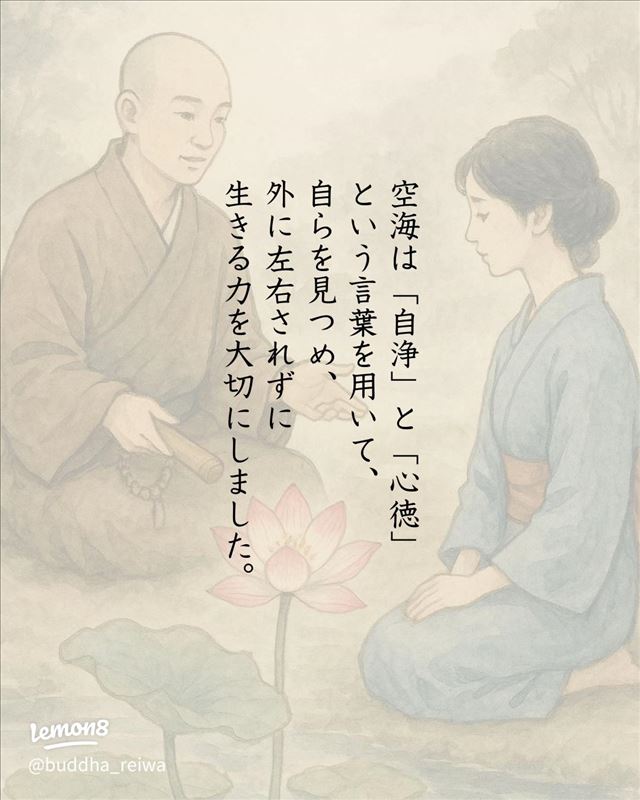 空海は「自浄」と「心徳」
という言葉を用いて、
自らを見つめ、
外に左右されずに
生きる力を大切にしました。
Lemon8
@buddha_reiwa